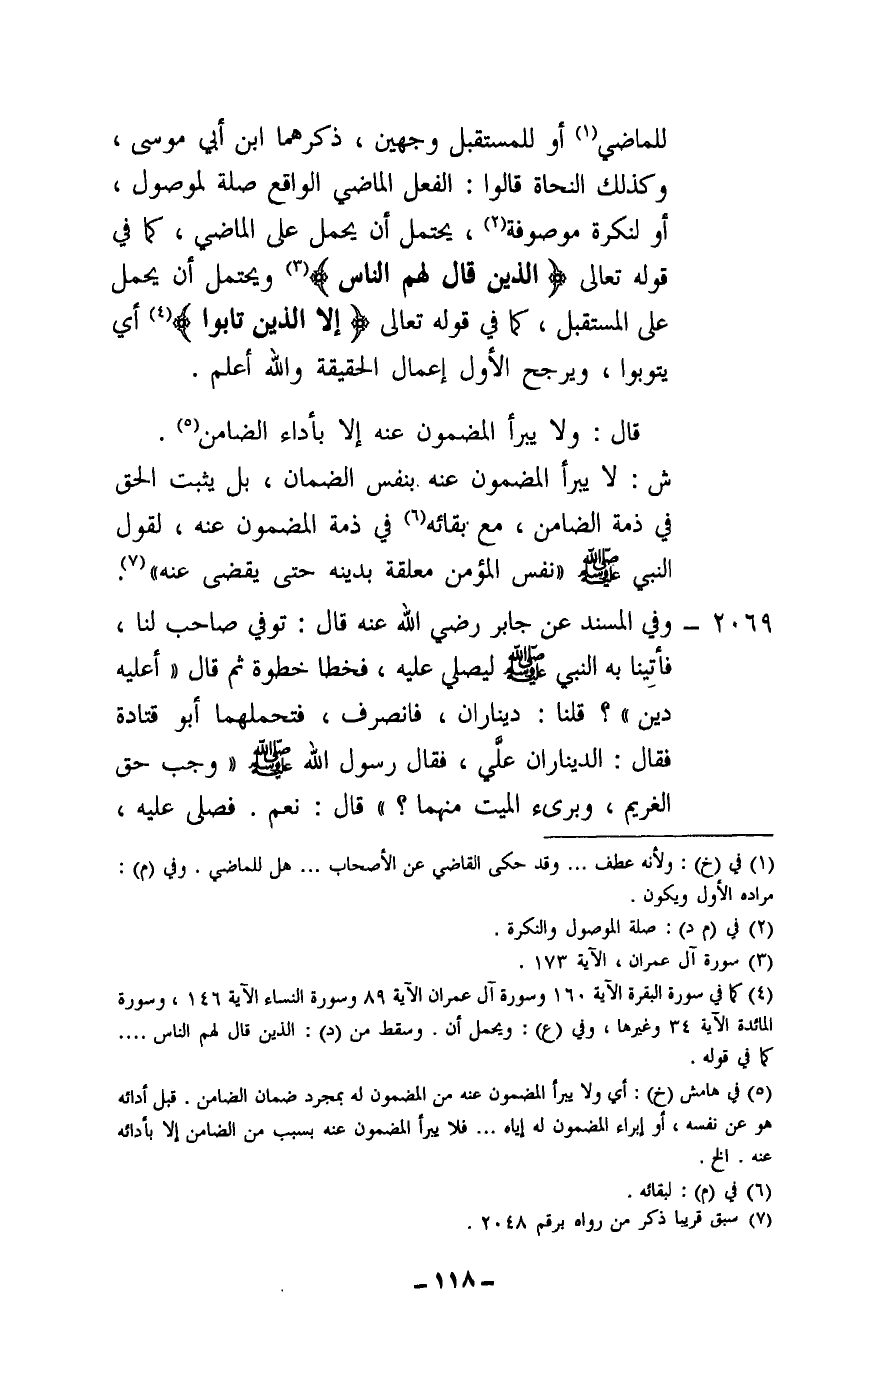 للماضي(١) أو للمستقبل وجهين ، ذكرهما ابن أبي موسى ،
وكذلك النحاة قالوا : الفعل الماضي الواقع صلة لموصول ،
أو لنكرة موصوفة(٢) ، يحتمل أن يحمل على الماضي ، كما في
قوله تعالى ﴿ الذين قال لهم الناس ﴾(٣) ويحتمل أن يحمل
على المستقبل ، كما في قوله تعالى ﴿ إلا الذين تابوا ﴾(٤) أي
يتوبوا ، ويرجح الأول إعمال الحقيقة والله أعلم .
قال : ولا يبرأ المضمون عنه إلا بأداء الضامن(٥) .
ش : لا يبرأ المضمون عنه بنفس الضمان ، بل يثبت الحق
في ذمة الضامن ، مع بقائه(٦) في ذمة المضمون عنه ، لقول
النبي ﷺ «نفس المؤمن معلقة بدينه حتى يقضى عنه»(٧).
٢٠٦٩ ــ وفي المسند عن جابر رضي الله عنه قال : توفي صاحب لنا ،
فأتينا به النبي ﷺ ليصلي عليه ، فخطا خطوة ثم قال « أعليه
دين » ؟ قلنا : ديناران ، فانصرف ، فتحملهما أبو قتادة
فقال : الديناران علَّي ، فقال رسول الله ﷺ « وجب حق
الغريم ، وبرىء الميت منهما ؟ » قال : نعم . فصلى عليه ،
(١) في (خ) : ولأنه عطف ... وقد حكى القاضي عن الأصحاب ... هل للماضي . وفي (م) :
مراده الأول ويكون .
(٢) في (م د) : صلة الموصول والنكرة .
(٣) سورة آل عمران ، الآية ١٧٣ .
(٤) كما في سورة البقرة الآية ١٦٠ وسورة آل عمران الآية ٨٩ وسورة النساء الآية ١٤٦ ، وسورة
المائدة الآية ٣٤ وغيرها ، وفي (ع) : ويحمل أن . وسقط من (د) : الذين قال لهم الناس ....
كما في قوله .
(٥) في هامش (خ) : أي ولا يبرأ المضمون عنه من المضمون له بمجرد ضمان الضامن . قبل أدائه
هو عن نفسه ، أو إبراء المضمون له إياه ... فلا يبرأ المضمون عنه بسبب من الضامن إلا بأدائه
عنه . الخ .
(٦) في (م) : لبقائه .
(٧) سبق قريبا ذكر من رواه برقم ٢٠٤٨ .
ــ ١١٨ ــ